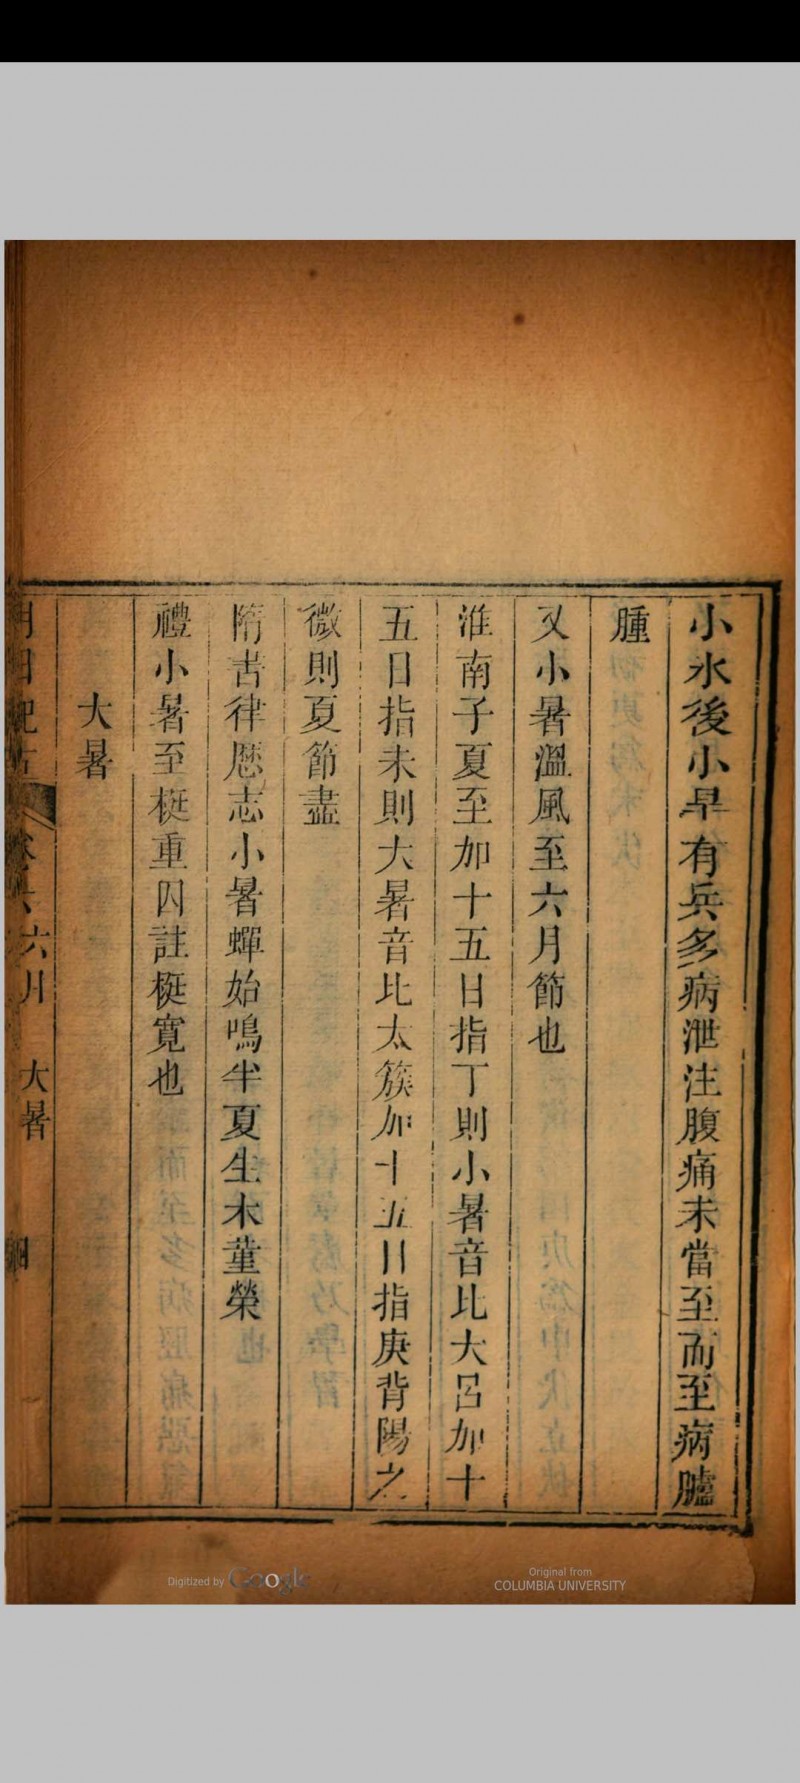 小水後小旱有兵多病泄注腹痛未當至而至病臚
腫
又小暑溫風至六月節也
淮南子夏至加十五日指丁則小暑音比大呂加十
五日指未則大暑音比太簇加十五日指庚背陽之
微則夏節盡
隋書律厯志小暑蟬始鳴半夏生木菫榮
禮小暑至梃重囚註梃寬也
大暑
月日紀古
六月 大暑
Digitized by Google
Original from
COLUMBIA UNIVERSITY